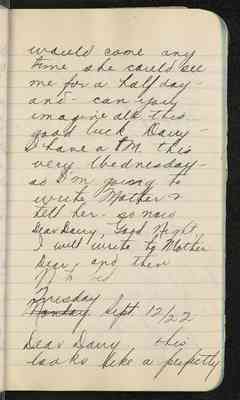 would come any
time she could see
me for a half day -
and - can you
imagine all this
good luck Dairy -
I have a PM this
very Wednesday -
so I'm going to
write Mother &
tell her. so now
Dear Dairy, Good Night,
I will write to Mother
Dear, and then
Tuesday
Monday Sept. 12/22
Dear Dairy this
looks like a perfectly